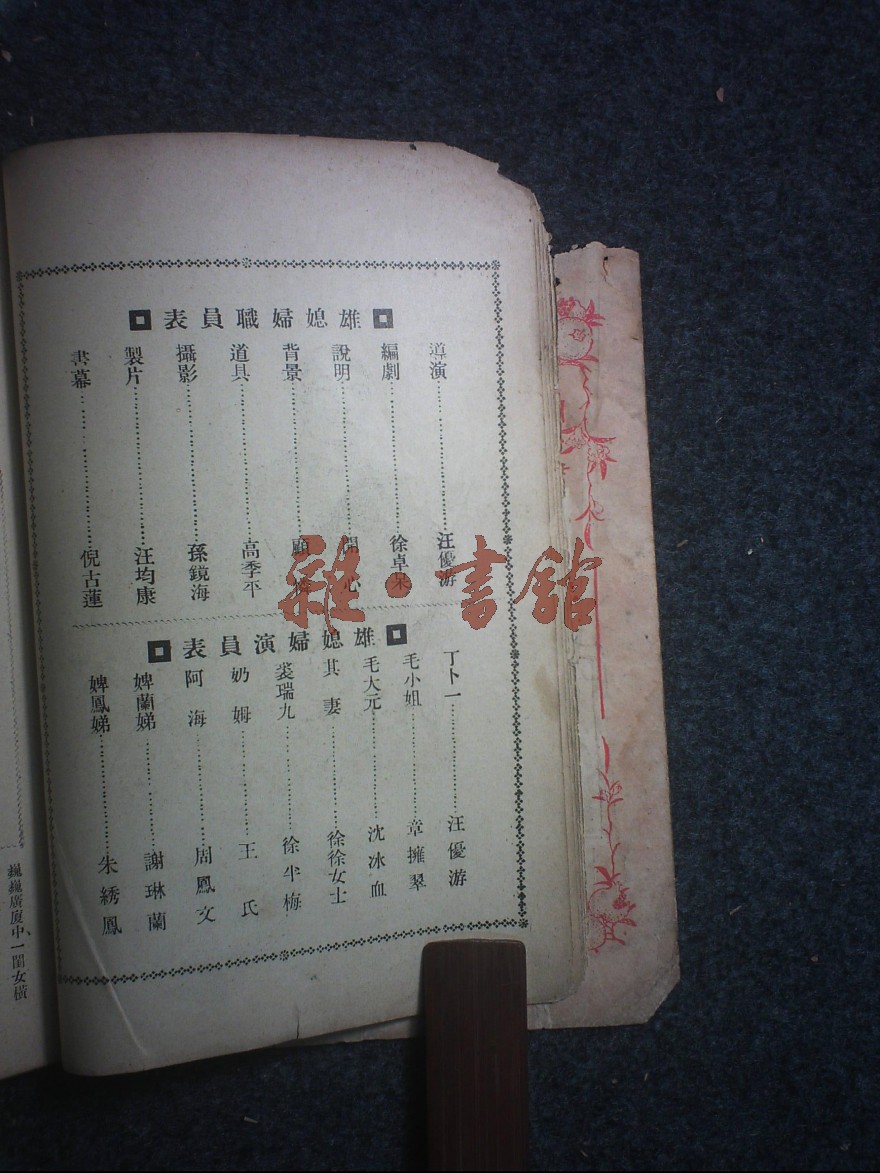 雄媳婦職員表
導演 汪優游
編劇 徐卓呆
說明 開心
背景 顧
道具 高季平
攝影 孫鏡海
製片 汪均康
書幕 倪古蓮
雄媳婦演員表
丁卜一 汪優游
毛小姐 章擁翠
毛大元 沈冰血
其妻 徐徐女士
裘瑞九 徐半梅
奶姆 王氏
阿海 周鳳文
婢蘭娣 謝琳蘭
婢鳳娣 朱綉鳳
巍巍廣廈中、一閨女橫
雜·書館